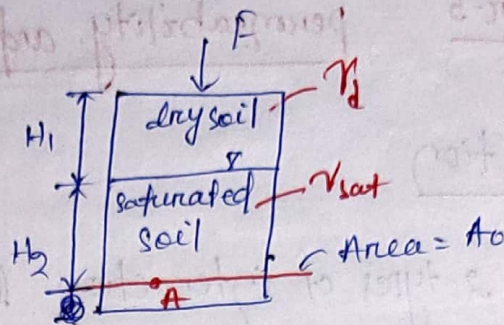 F
dry soil
γd
H1
saturated
soil
γsat
H2
Area = A0
A